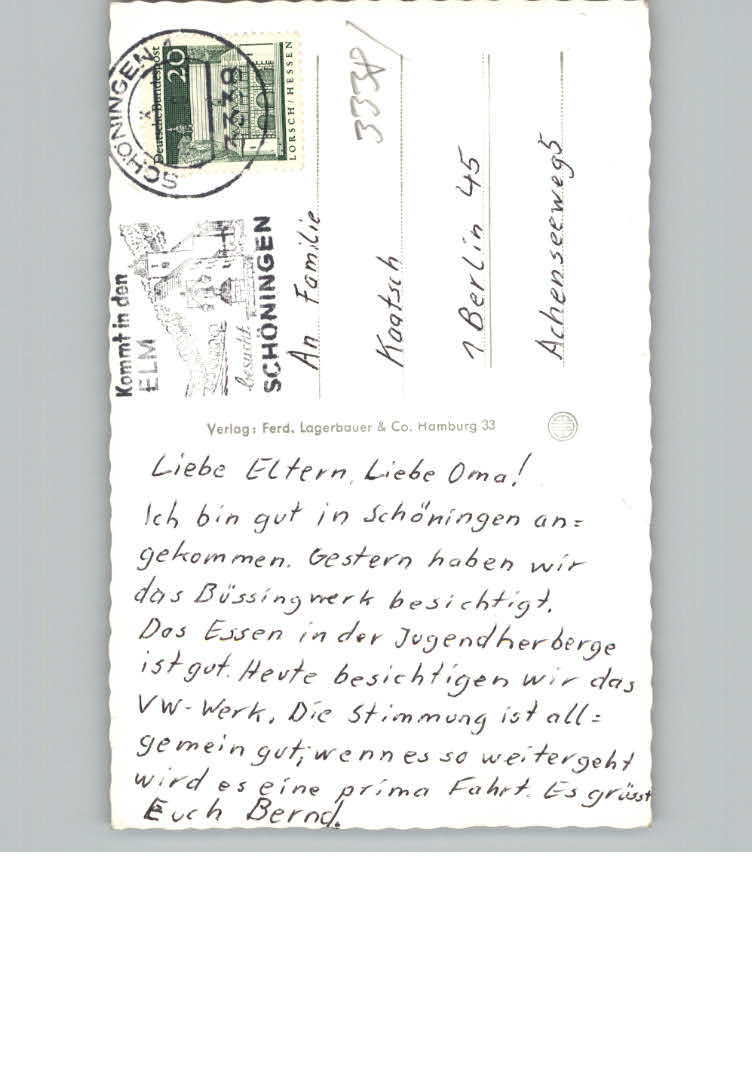 SCHÖNINGEN
3338
Deutsche Bundespost
20
LORSCH/HESSEN
Kommt in den
ELM
besucht
SCHÖNINGEN
3338/
An Familie
Kaatsch
1 Berlin 45
Achenseeweg 5
Verlag: Ferd. Lagerbauer & Co. Hamburg 33
Liebe Eltern, Liebe Oma!
Ich bin gut in Schöningen an=
gekommen. Gestern haben wir
das Büssingwerk besichtigt.
Das Essen in der Jugendherberge
ist gut. Heute besichtigen wir das
VW-Werk. Die Stimmung ist all=
gemein gut; wenn es so weitergeht
wird es eine prima Fahrt. Es grüsst
Euch Bernd.